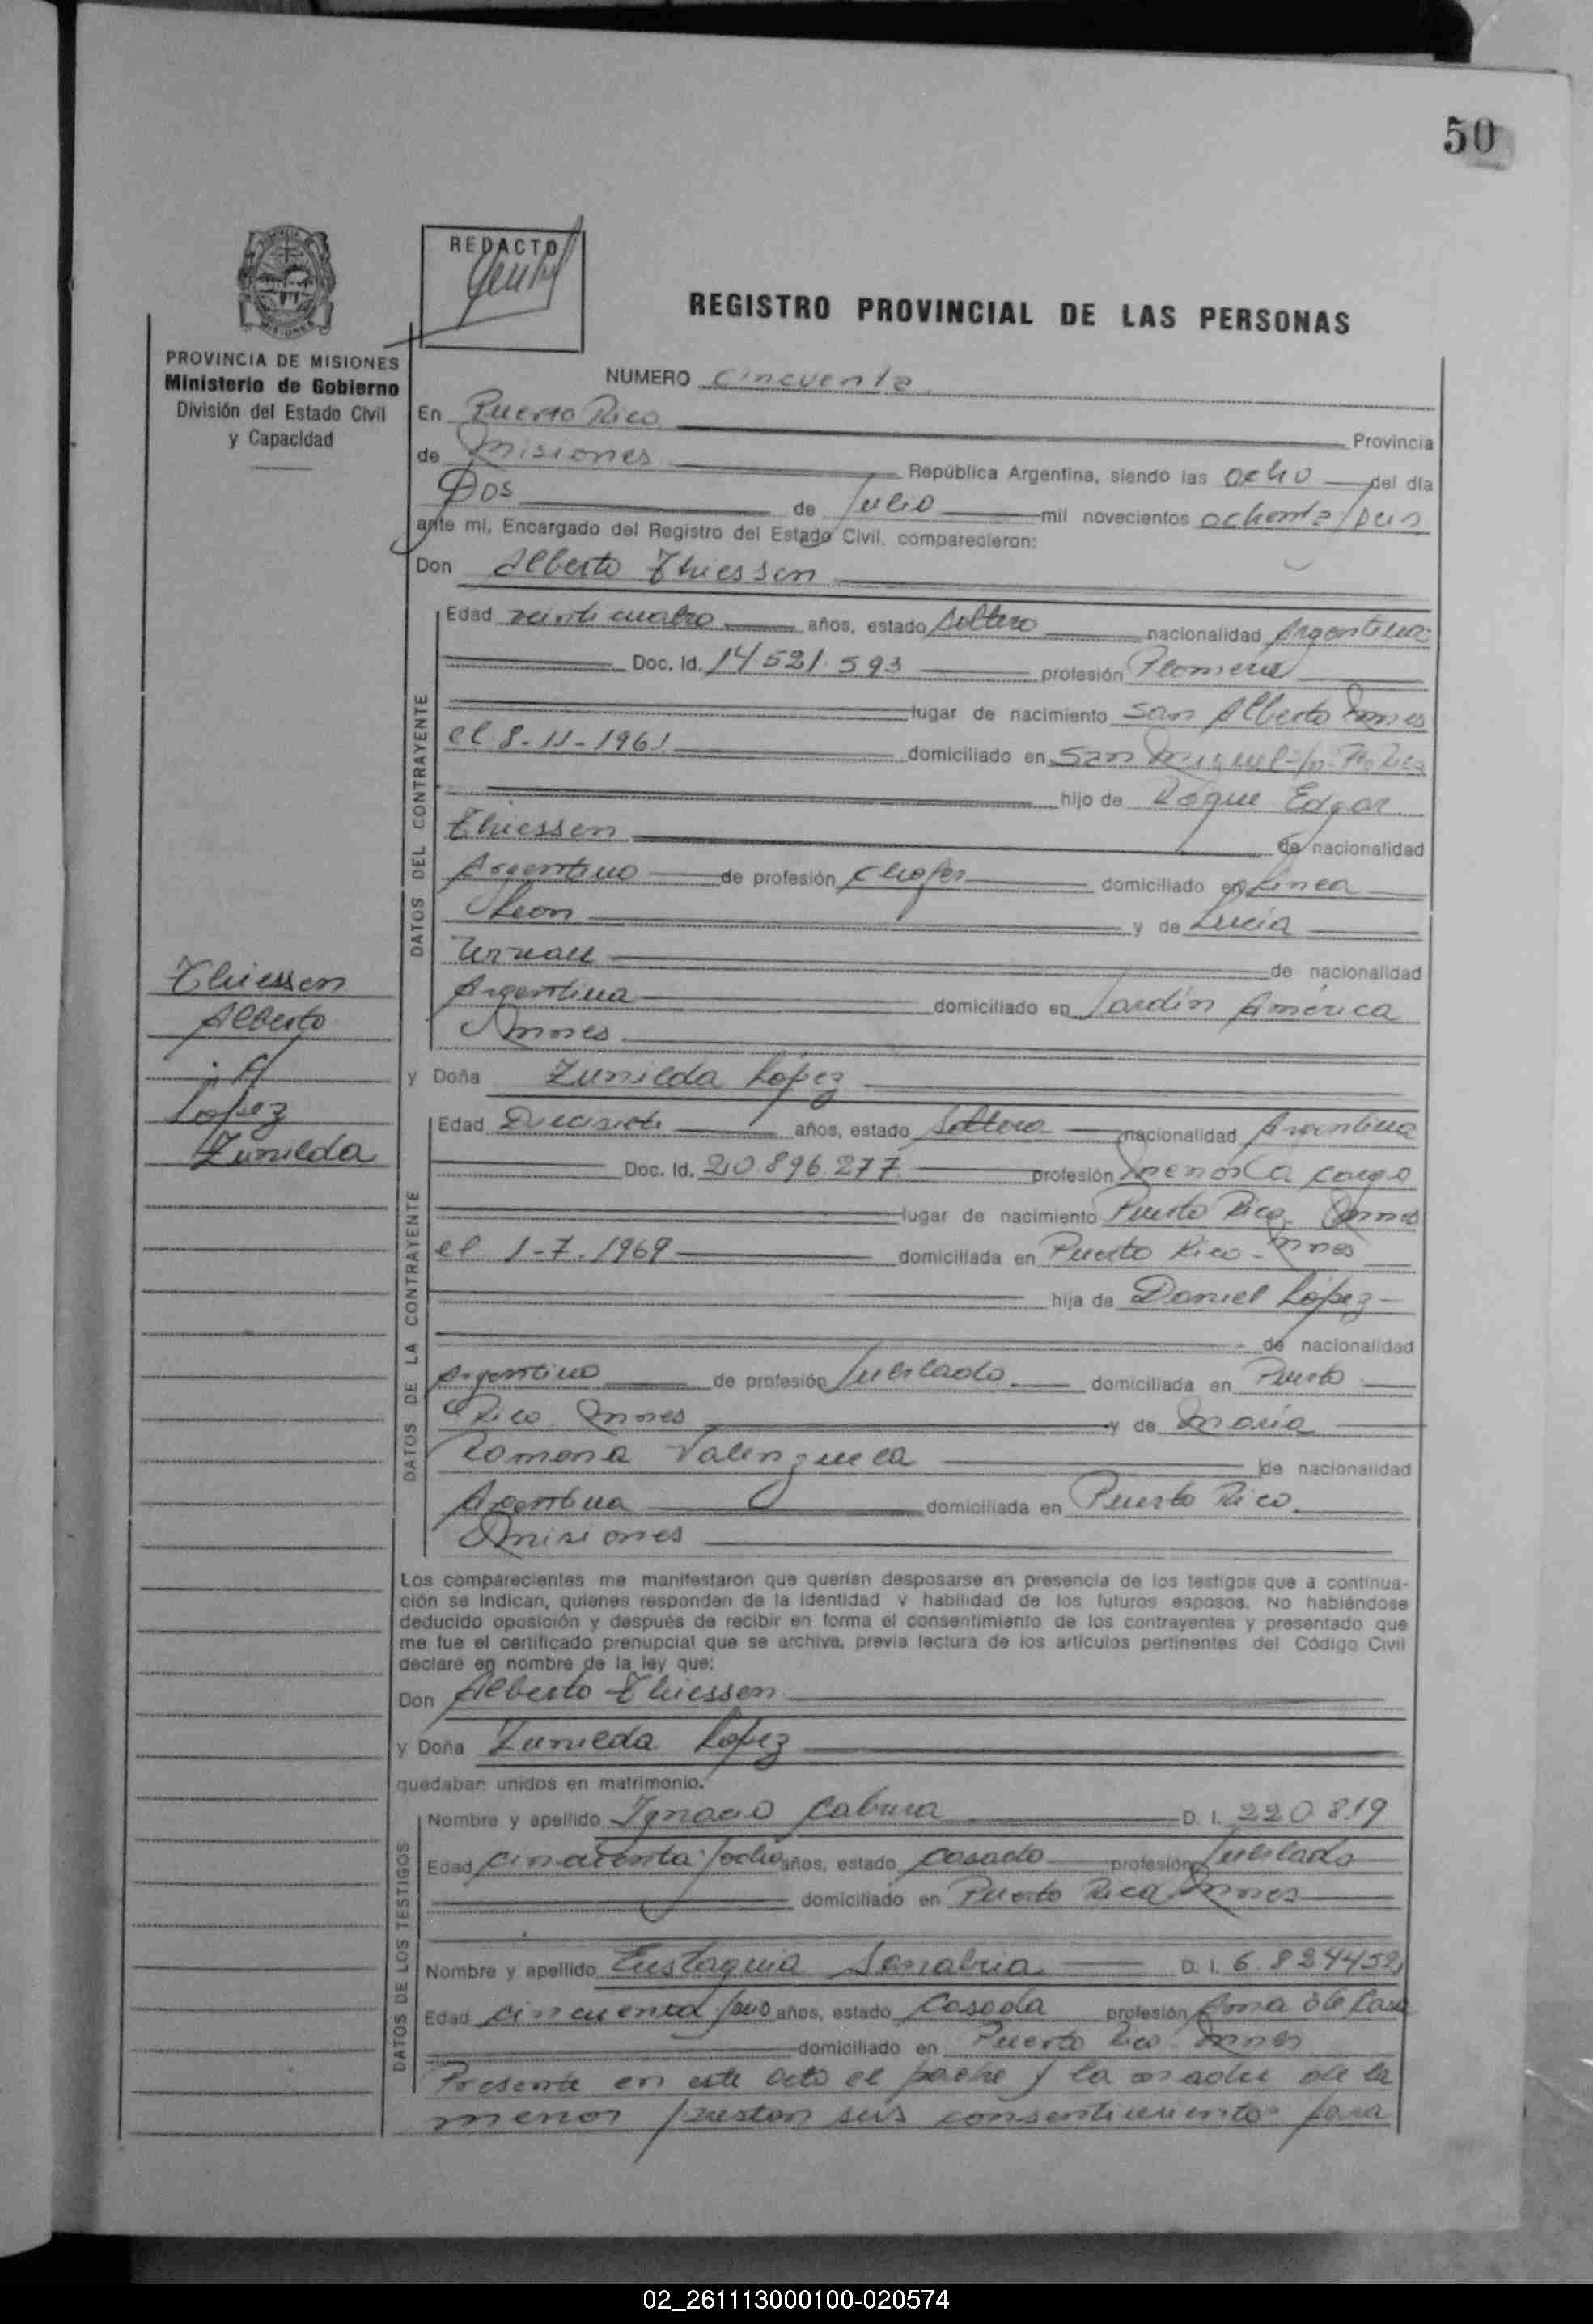 50
REDACTO
REGISTRO PROVINCIAL DE LAS PERSONAS
PROVINCIA DE MISIONES
Ministerio de Gobierno
División del Estado Civil
y Capacidad
NUMERO Cincuenta
En Puerto Rico Provincia
de Misiones República Argentina, siendo las ocho del día
Dos de Julio mil novecientos ochenta y seis
ante mi, Encargado del Registro del Estado Civil, comparecieron:
Don Alberto Thiessen
DATOS DEL CONTRAYENTE
Edad veinticuatro años, estado soltero nacionalidad Argentina
Doc. Id. 14 521.593 profesión Plomero
lugar de nacimiento San Alberto Mnes
el 8-11-1961 domiciliado en San Miguel Pto Rico
hijo de Roque Edgar
Thiessen de nacionalidad
Argentino de profesión chofer domiciliado en Linea
Leon y de Lucía
de nacionalidad
Argentina domiciliado en Jardín América
Mnes
Thiessen
Alberto
López
Zunilda
y Doña Zunilda López
DATOS DE LA CONTRAYENTE
Edad Diecisiete años, estado soltera nacionalidad Argentina
Doc. Id. 20.896.277 profesión menor a cargo
lugar de nacimiento Puerto Rico Mnes
el 1-7-1969 domiciliada en Puerto Rico - Mnes
hija de Daniel López
de nacionalidad
Argentino de profesión Jubilado domiciliada en Puerto
Rico Mnes y de María
Romona Valenzuela de nacionalidad
Argentina domiciliada en Puerto Rico
Misiones
Los comparecientes me manifestaron que querían desposarse en presencia de los testigos que a continua-
ción se indican, quienes responden de la identidad y habilidad de los futuros esposos. No habiéndose
deducido oposición y después de recibir en forma el consentimiento de los contrayentes y presentado que
me fue el certificado prenupcial que se archiva, previa lectura de los artículos pertinentes del Código Civil
declaré en nombre de la ley que:
Don Alberto Thiessen
y Doña Zunilda López
quedaban unidos en matrimonio.
DATOS DE LOS TESTIGOS
Nombre y apellido Ignacio Cabrera D. I. 220.819
Edad cincuenta y ocho años, estado casado profesión Jubilado
domiciliado en Puerto Rico Mnes
Nombre y apellido Eustaquia Sanabria D. I. 6.824452
Edad cincuenta y seis años, estado casada profesión Ama de Casa
domiciliado en Puerto Rico Mnes
Presente en este acto el padre y la madre de la
menor prestan sus consentimiento para
02_261113000100-020574